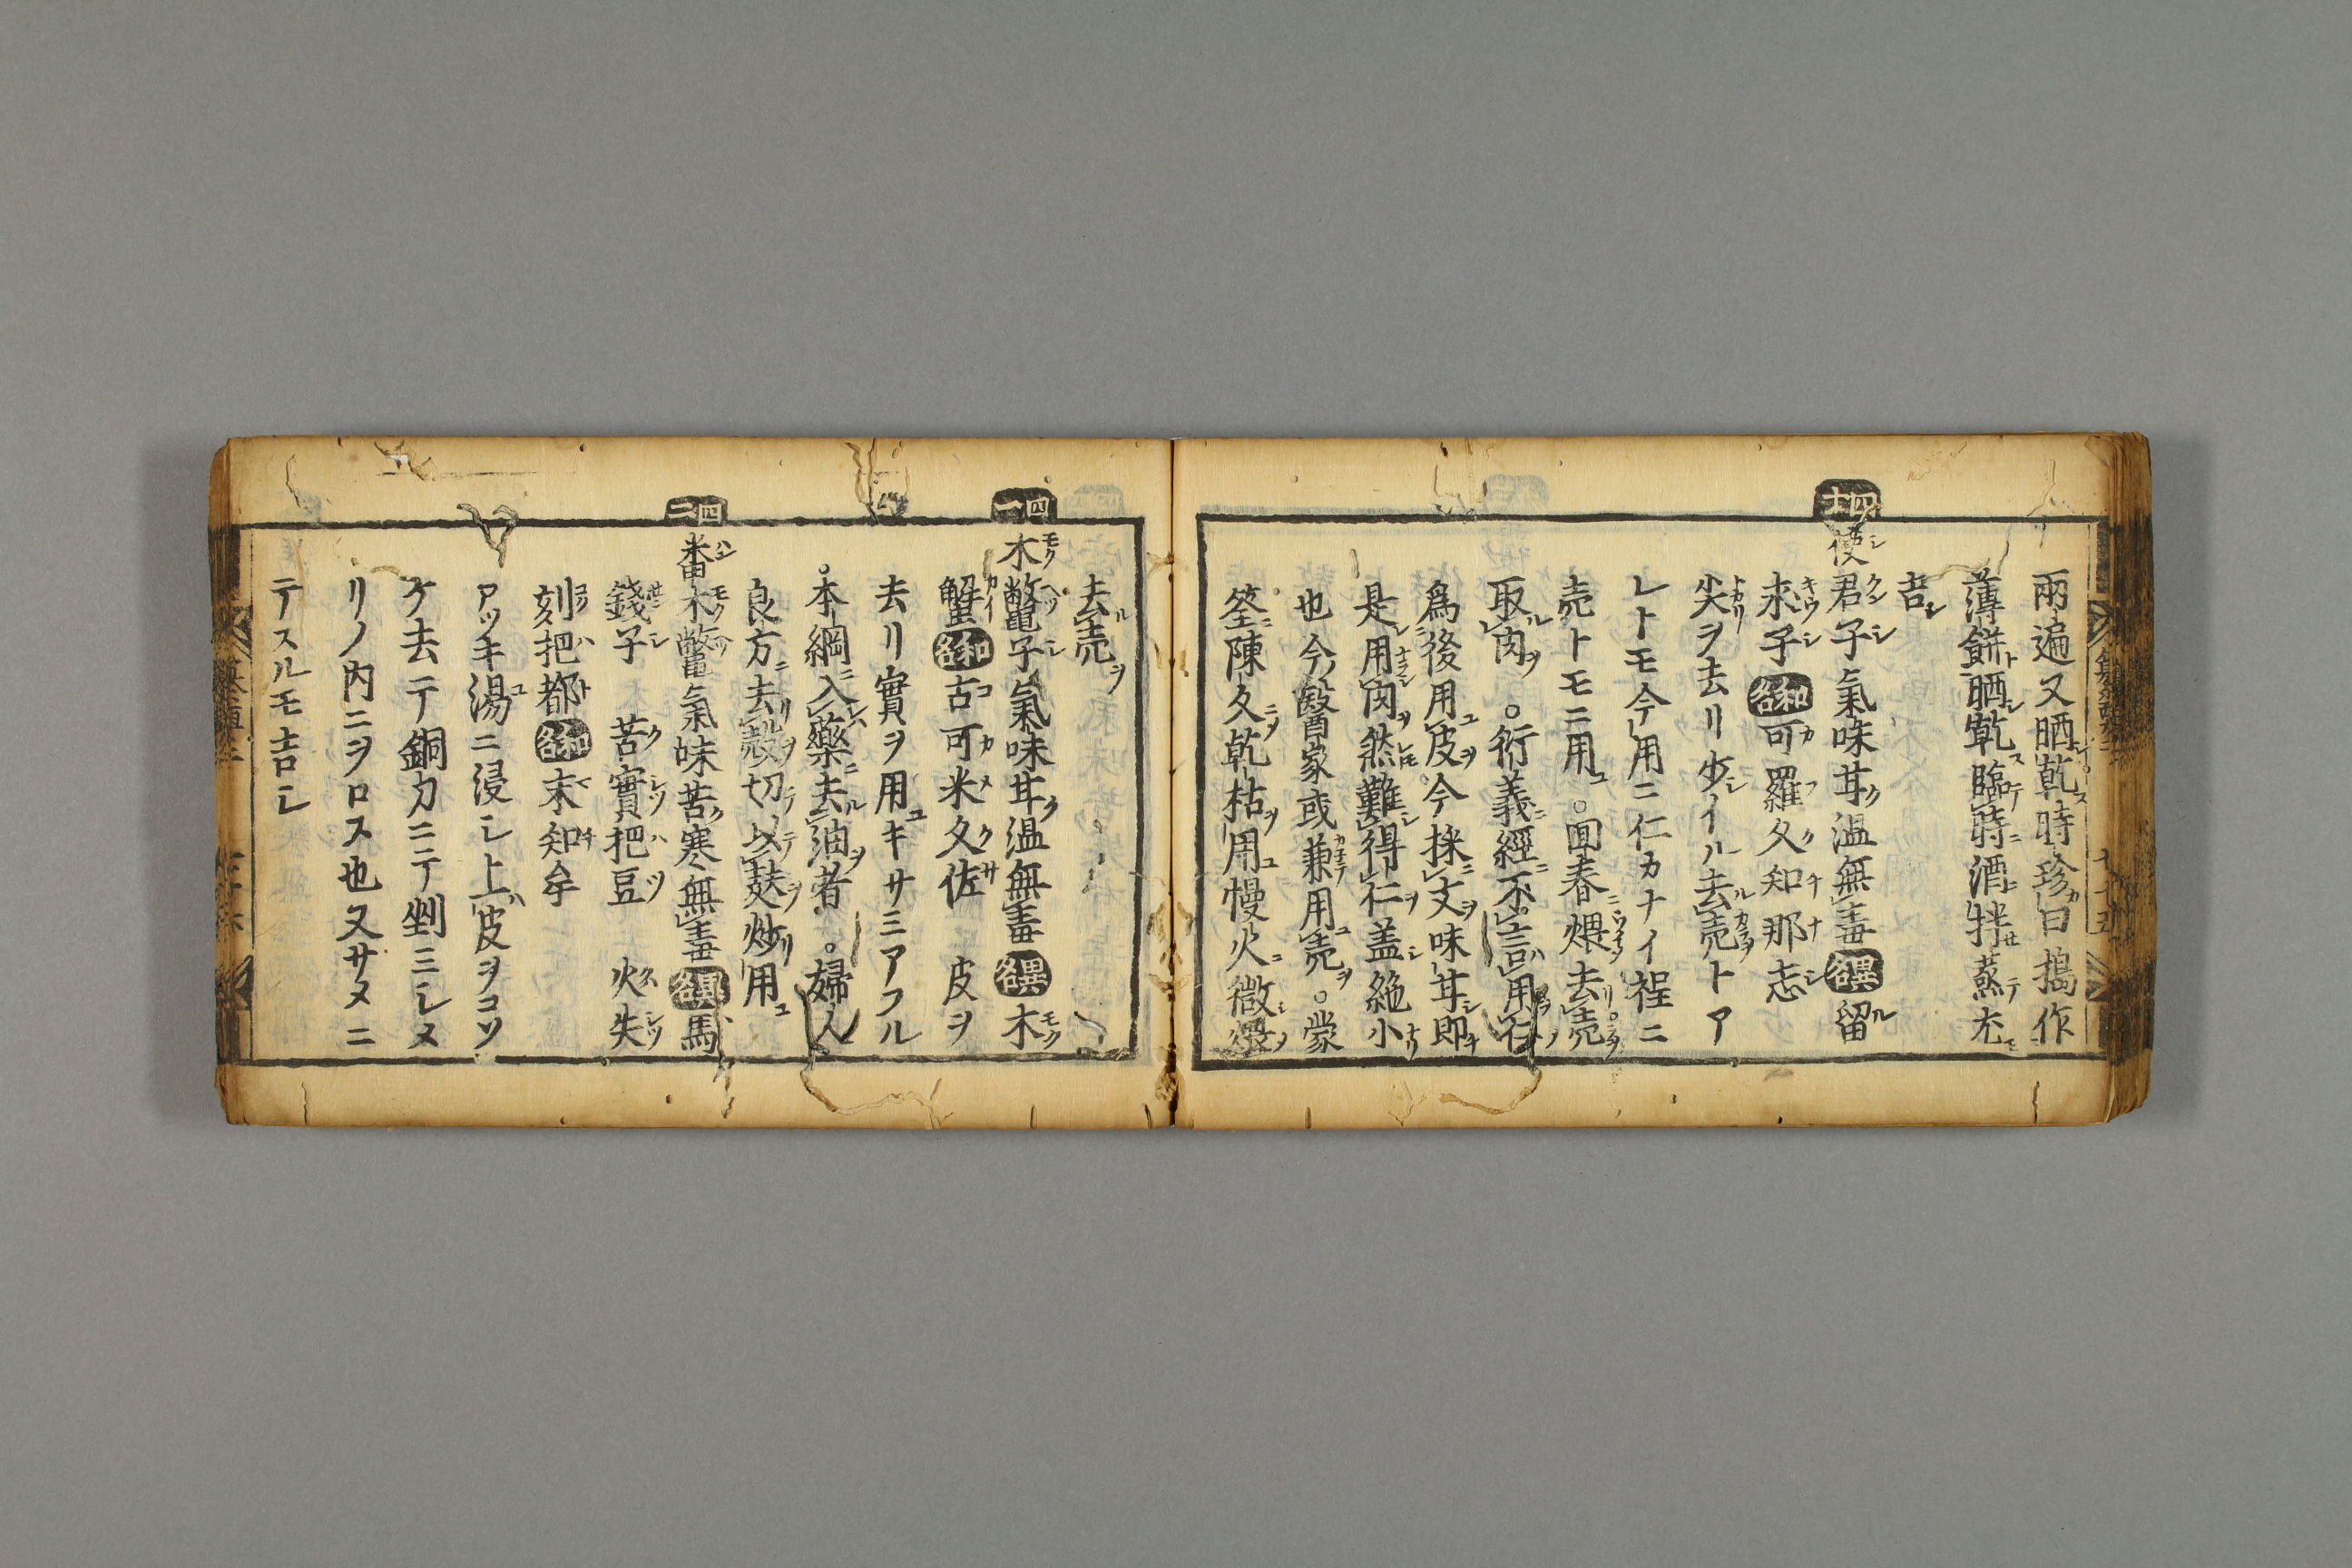 兩遍又晒乾時珍曰搗作
薄餅晒乾臨時酒拌蒸尤
吉
四十
使君子氣味甘温無毒異名留
求子和名可羅久知那志
尖ヲ去リ少イハ去売トア
レトモ今用ニ仁カナイ程ニ
売トモニ用○回春煨去売
取肉○衍義經不言用仁
爲後用皮今採文味甘即
是用肉然難得仁盖絶小
也今醫家或兼用売○蒙
筌陳久乾枯用慢火微煨
去売
四一
木鼈子氣味甘温無毒異名木
蟹和名古可米久佐 皮ヲ
去リ實ヲ用キサミアフル
○本綱入藥去油者○婦人
良方去殻切以麸炒用
四二
番木鼈氣味苦寒無毒異名馬
錢子 苦實把豆 火失
刻把都和名末知牟
アツキ湯ニ浸シ上皮ヲコソ
ケ去テ銅刀ニニテ剉ミシメ
リノ内ニヲロス也又サメニ
テスルモ吉シ